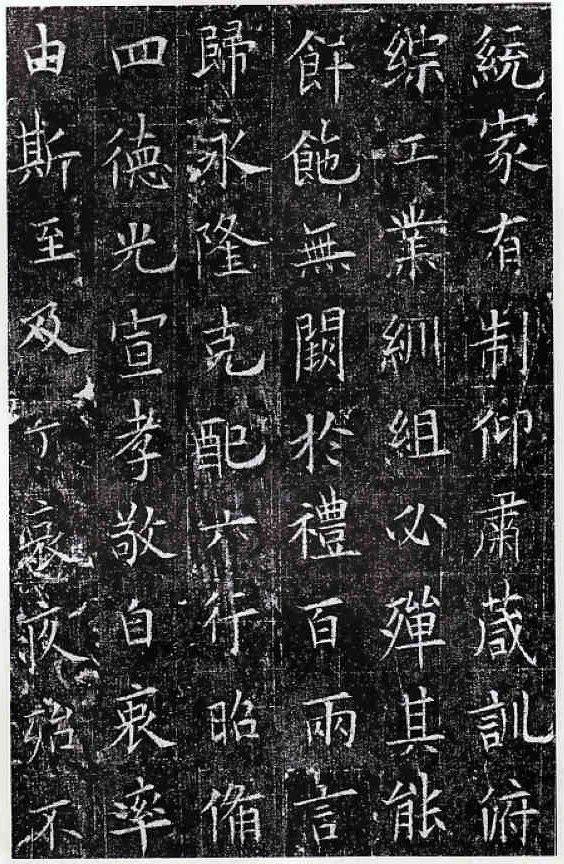 綂家有制仰肅葴訓俯
綜工業紃組必殫其能
餠飾無闕於禮百兩言
歸永隆克配六行昭備
四德光宣孝敬自衷率
由斯至及丁哀疚殆不